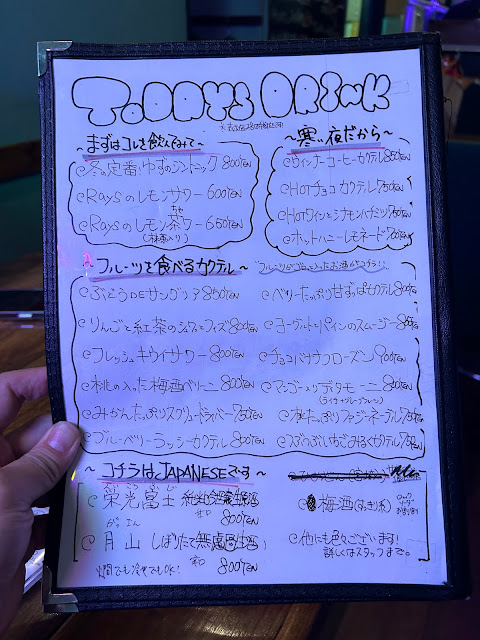 TODAYS DRINK
~まずはコレを飲んでみて~
冬の定番、ゆずのジントニック 800YEN
Raysのレモンサワー 600YEN
Raysのレモン茶ワー 650YEN
~寒い夜だから~
ウィンナーコーヒーカクテル 850YEN
HOTチョコカクテル 750YEN
HOTワインとシナモンハチミツ 750YEN
ホットハニーレモネード 700YEN
~フルーツを食べるカクテル~
フルーツがゴロッと入ったお酒がイチオシ!!
ぶどうDEサングリア 850YEN
りんごと紅茶のジュワッとフィズ 800YEN
フレッシュキウイサワー 800YEN
桃の入った梅酒ベリーニ 800YEN
みかんたっぷりスクリュードライバー 750YEN
ブルーベリーラッシーカクテル 800YEN
ベリーたっぷり甘ずっぱカクテル 800YEN
ヨーグルトとパインのスムージー 800YEN
チョコバナナフローズン 900YEN
マンゴー入りデラモーニ 800YEN
桃たっぷりファジーネーブル 750YEN
つぶつぶいちごみるくカクテル
~コチラはJAPANESEです~
えいこうふじ
栄光冨士
甘口 800YEN
がっさん
月山 しぼりたて無濾過生酒
800YEN
燗でも冷やでもOK!
梅酒
他にも色々ございます!
詳しくはスタッフまで。